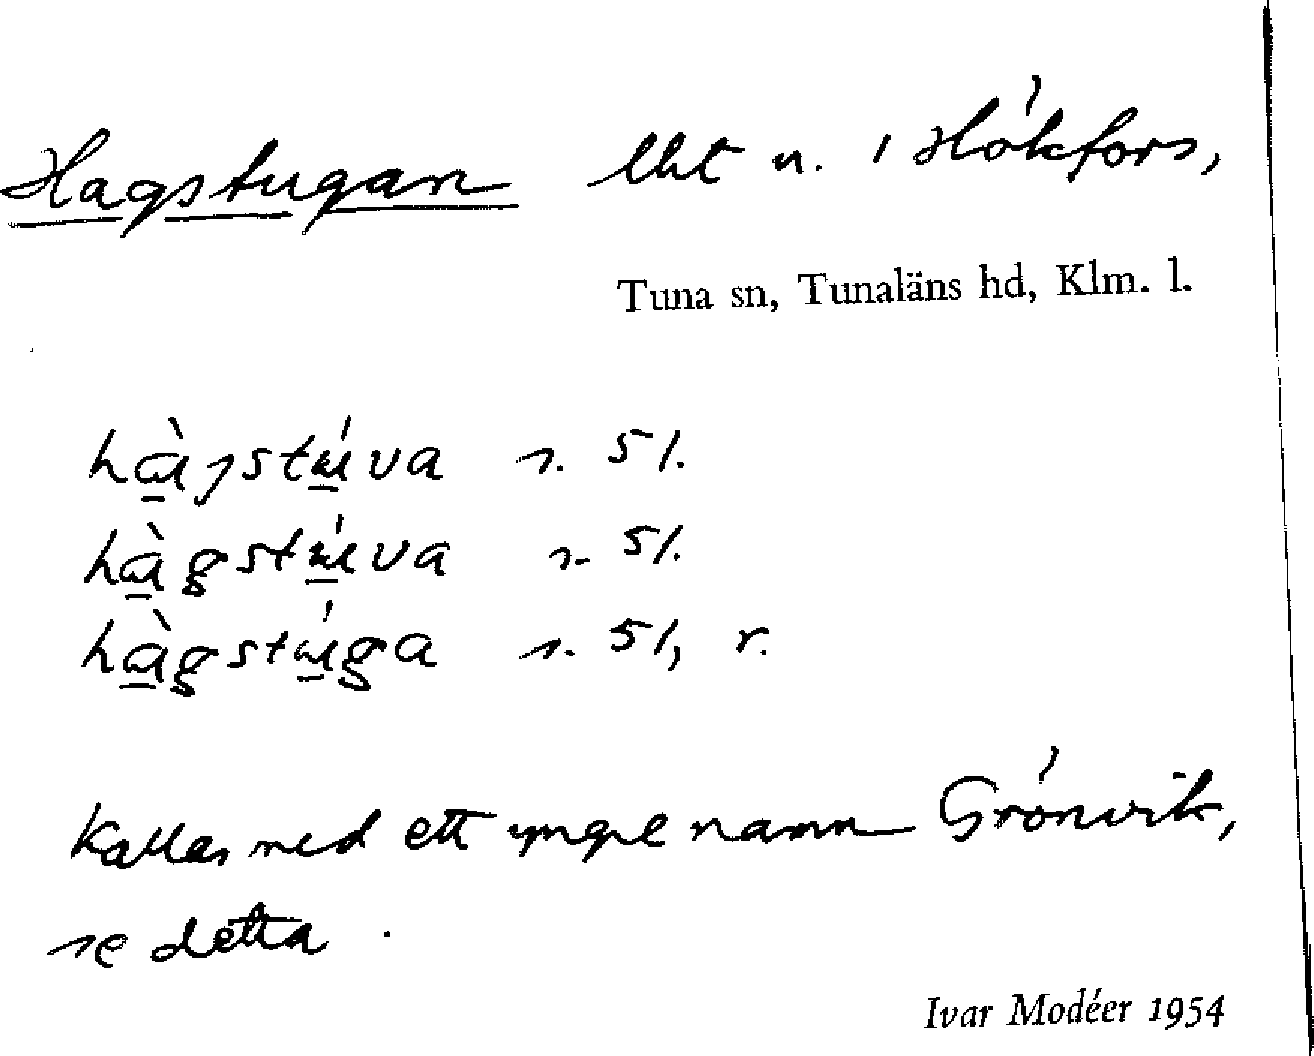 Hagstugan lht n. i Hökfors,
Tuna sn, Tunaläns hd, Klm. l.
s. 51.
s. 51.
s. 51, r.
Kallas med ett yngre namn Grönvik,
se detta.
Ivar Modéer 1954